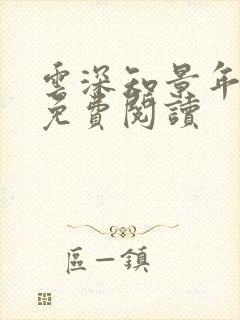 雲深知景年
免費閱讀
區一鎮